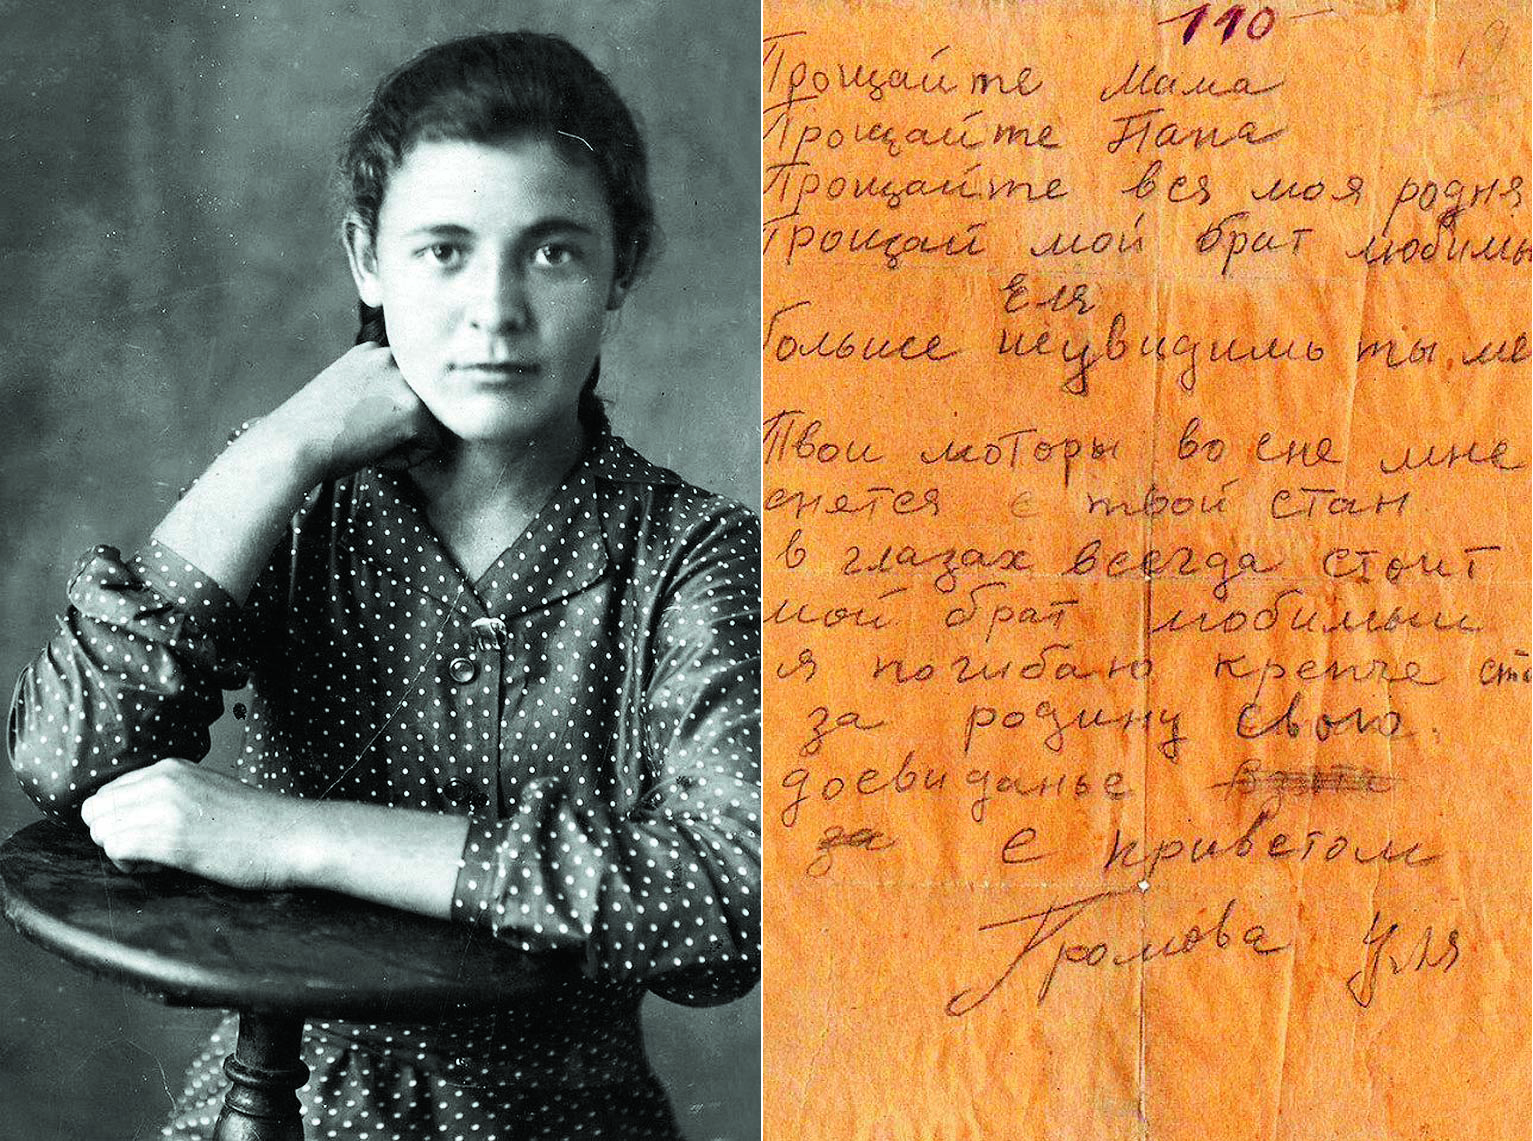 110
19
Прощайте Мама
Прощайте Папа
Прощайте вся моя родня
Прощай мой брат любимы
Еля
больше неувидишь ты ме
Твои моторы во сне мне
снятся с твой стан
в глазах всегда стоит
мой брат любимый
я погибаю крепче ста
за родину свою.
досвиданье
за с приветом
Громова Уля